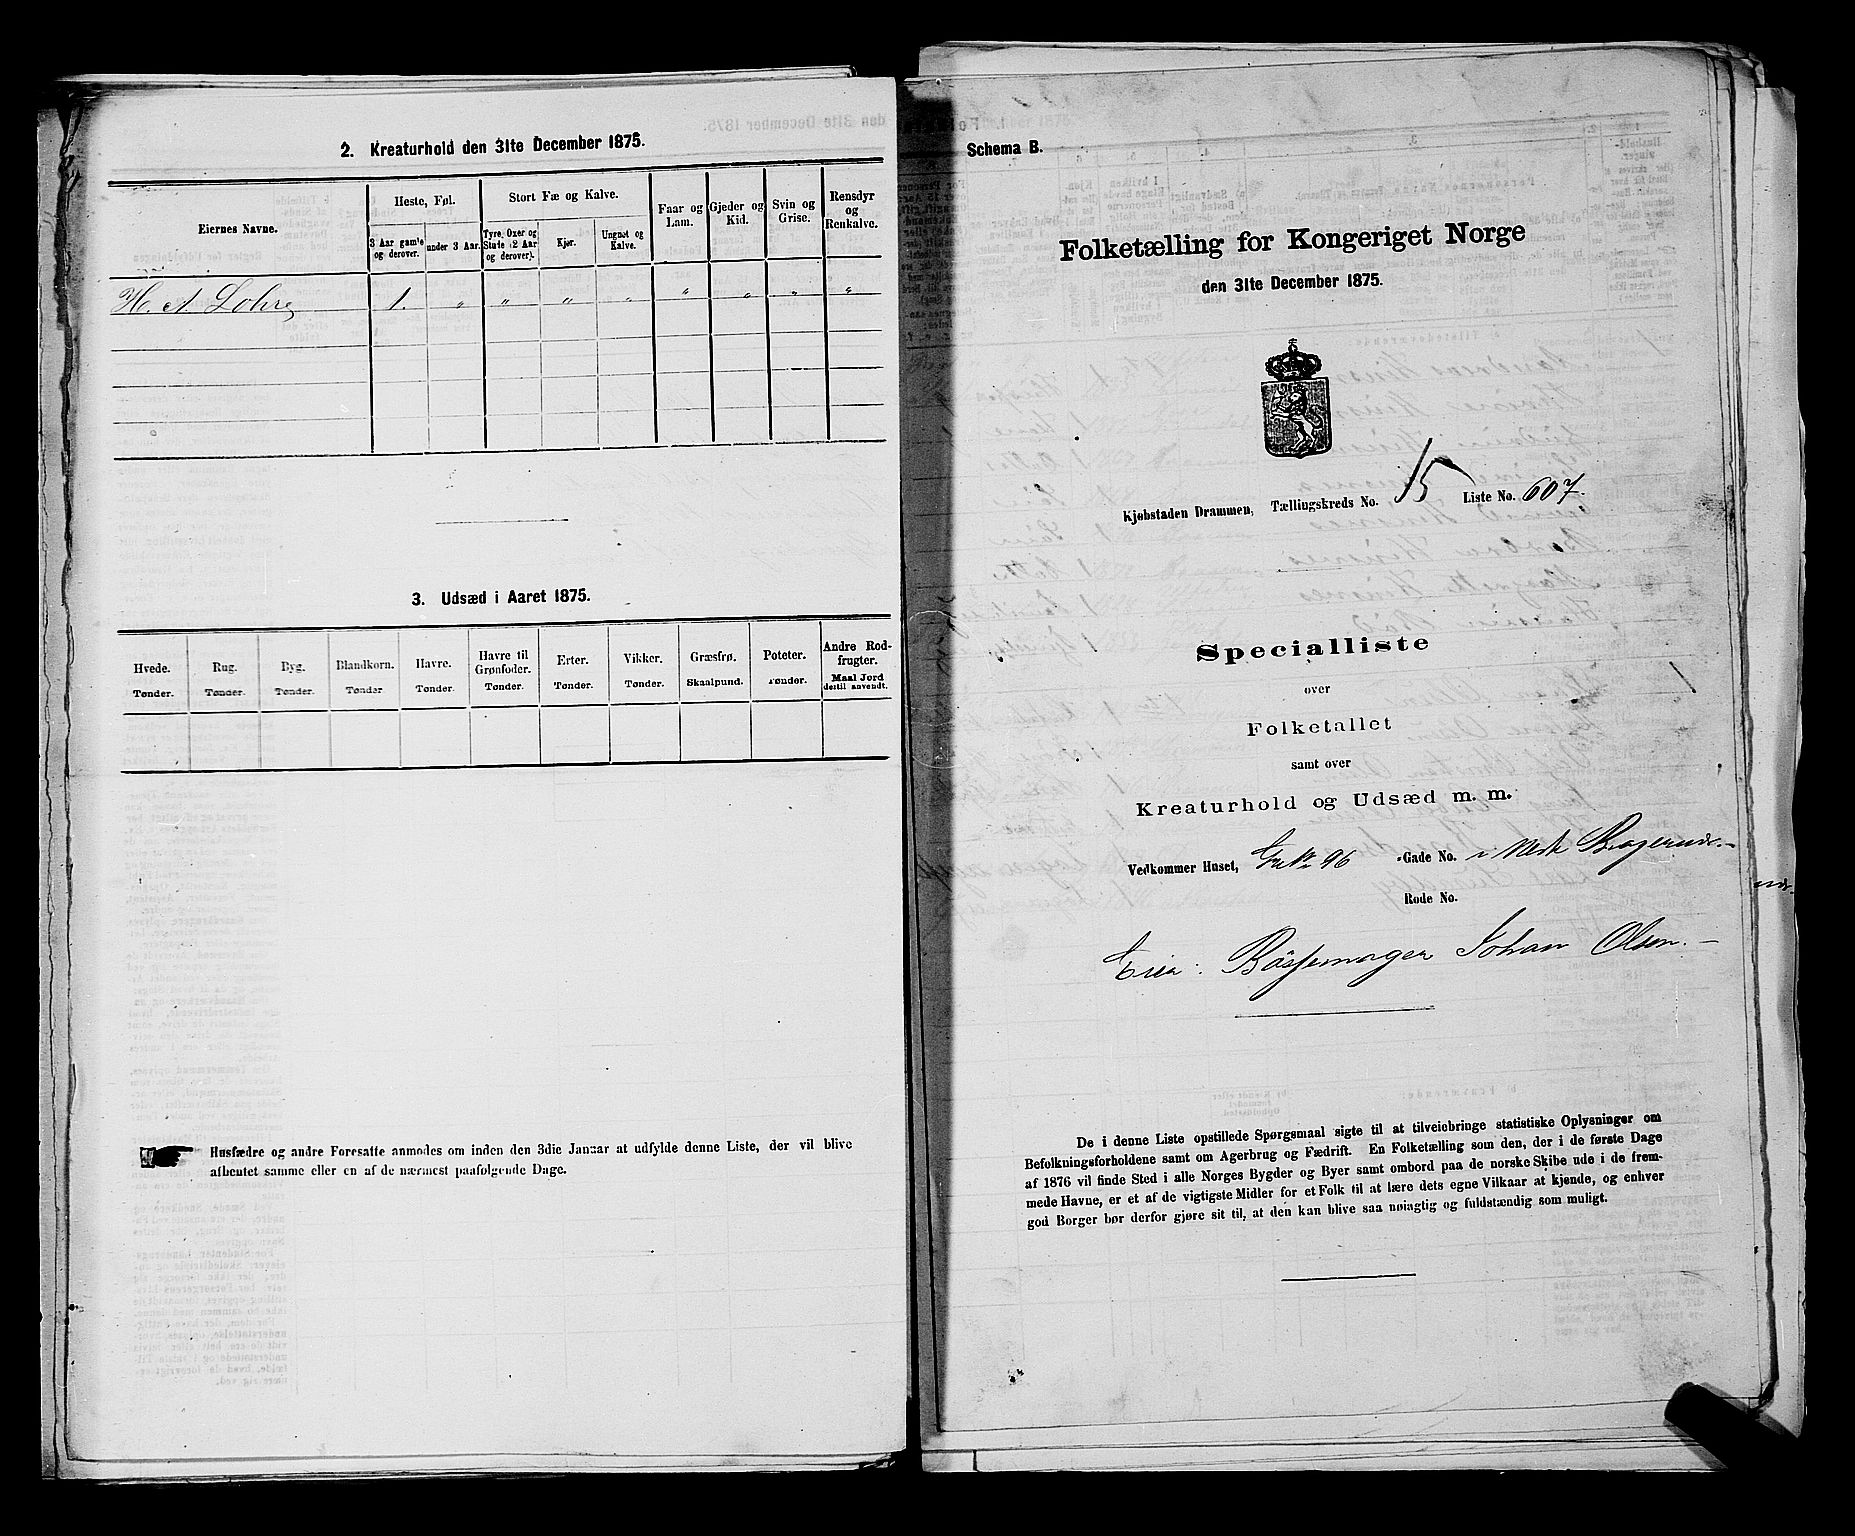 2. Kreaturhold den 31te December 1875.
Eiernes Navne.
Heste, Føl.
Stort Fæ og Kalve.
Faar og Lam.
Gjeder og Kid.
Svin og Grise.
Rensdyr og Renkalve.
3 Aar gamle og derover.
under 3 Aar.
Tyre, Oxer og Stude (2 Aar og derover).
Kjør.
Ungnøt og Kalve.
H. A. Lohre 1. " " " " " " " "
3. Udsæd i Aaret 1875.
Hvede. Rug. Byg. Blandkorn. Havre. Havre til Grønfoder. Erter. Vikker. Græsfrø. Poteter. Andre Rodfrugter.
Tønder. Tønder. Tønder. Tønder. Tønder. Tønder. Tønder. Tønder. Skaalpund. Tønder. Maal Jord dertil anvendt.
Husfædre og andre Foresatte anmodes om inden den 3die Januar at udfylde denne Liste, der vil blive
afhentet samme eller en af de nærmest paafølgende Dage.
Schema B.
Folketælling for Kongeriget Norge
den 31te December 1875.
Kjøbstaden Drammen, Tællingskreds No. 15 Liste No. 607.
Specialliste
over
Folketallet
samt over
Kreaturhold og Udsæd m. m.
Vedkommer Huset, 96 Gade No. i
Rode No.
Eier: Bøssemager Johan Olsen.
De i denne Liste opstillede Spørgsmaal sigte til at tilveiebringe statistiske Oplysninger om
Befolkningsforholdene samt om Agerbrug og Fædrift. En Folketælling som den, der i de første Dage
af 1876 vil finde Sted i alle Norges Bygder og Byer samt ombord paa de norske Skibe ude i de frem-
mede Havne, er et af de vigtigste Midler for et Folk til at lære dets egne Vilkaar at kjende, og enhver
god Borger bør derfor gjøre sit til, at den kan blive saa nøiagtig og fuldstændig som muligt.